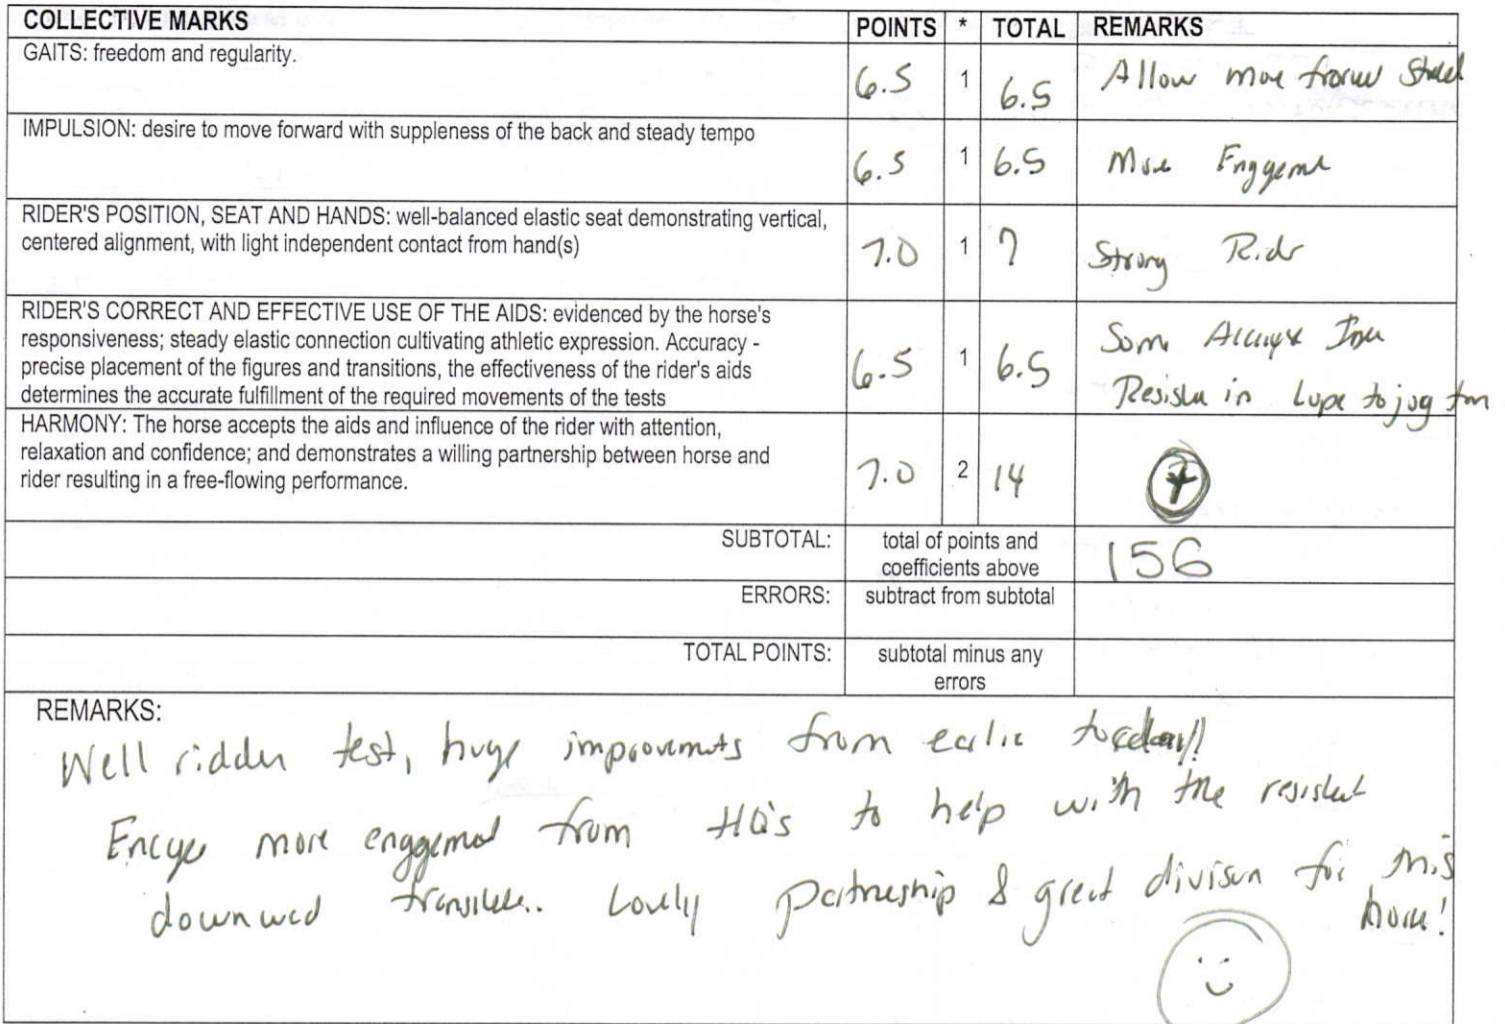 COLLECTIVE MARKS POINTS * TOTAL REMARKS
GAITS: freedom and regularity.
6.5 1 6.5 Allow more
IMPULSION: desire to move forward with suppleness of the back and steady tempo
6.5 1 6.5 More
RIDER'S POSITION, SEAT AND HANDS: well-balanced elastic seat demonstrating vertical,
centered alignment, with light independent contact from hand(s)
7.0 1 7 Strong Ridr
RIDER'S CORRECT AND EFFECTIVE USE OF THE AIDS: evidenced by the horse's
responsiveness; steady elastic connection cultivating athletic expression. Accuracy -
precise placement of the figures and transitions, the effectiveness of the rider's aids
determines the accurate fulfillment of the required movements of the tests
6.5 1 6.5 Some
in Lope to jog
HARMONY: The horse accepts the aids and influence of the rider with attention,
relaxation and confidence; and demonstrates a willing partnership between horse and
rider resulting in a free-flowing performance.
7.0 2 14 +
SUBTOTAL: total of points and
coefficients above
156
ERRORS: subtract from subtotal
TOTAL POINTS: subtotal minus any
errors
REMARKS:
Well ridden test, huge improvemnts from earlie today!!
more from HQ's to help with the
downwed Lovely partneship & great divison for this
horse!